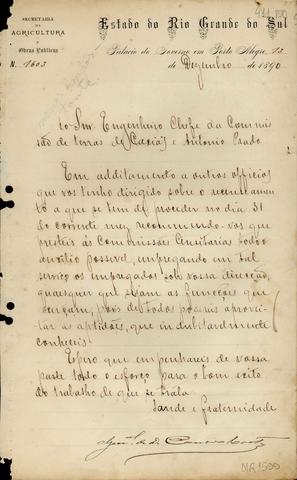 SECRETARIA
DA
AGRICULTURA
E
Obras Publicas
N. 1603
Estado do Rio Grande do Sul
Palacio do Governo em Porto Alegre, 12
de Dezembro de 1890
Ao Snr. Engenheiro Chefe da Commis
são de terras de Caxias e Antonio Prado
Em additamento a outros officios
que vos tenho dirigido sobre o recenseamen
to a que se tem de proceder no dia 31
do corrente mez, recommendo-vos que
presteis ás Commissões Censitarias todo o
auxilio possivel, empregando em tal
serviço os empregados sob vossa direcção,
quaesquer que sejam as funcções que
exerçam, pois de todos podereis aprovei-
tar as aptidões, que indubitavelmente
conheceis.
Espero que empenhareis de vossa
parte todo o esforço para o bom exito
do trabalho de que se trata.
Saude e fraternidade
MR1599